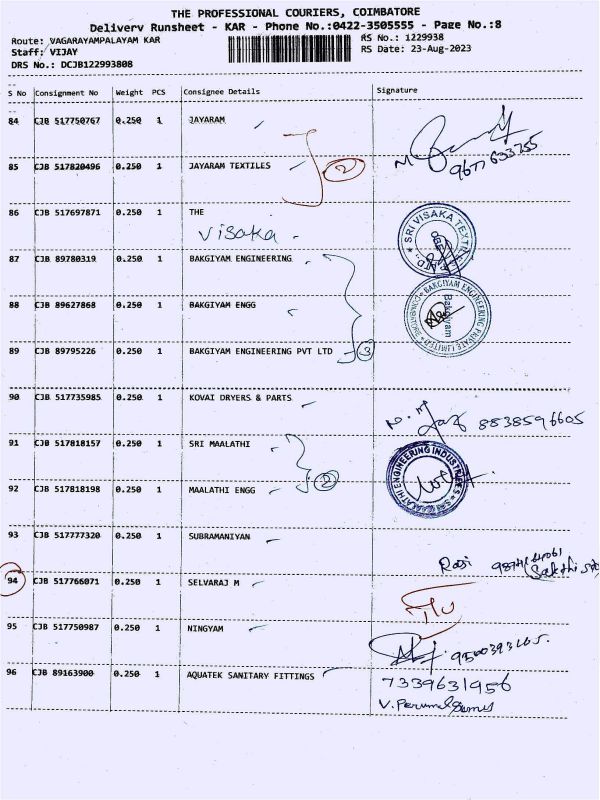 THE PROFESSIONAL COURIERS, COIMBATORE
Delivery Runsheet - KAR - Phone No.:0422-3505555 - Page No.:8
Route: VAGARAYAMPALAYAM KAR RS No.: 1229938
Staff: VIJAY RS Date: 23-Aug-2023
DRS No.: DCJB122993808
S No Consignment No Weight PCS Consignee Details Signature
84 CJB 517750767 0.250 1 JAYARAM
9677633755
85 CJB 517820496 0.250 1 JAYARAM TEXTILES 2
86 CJB 517697871 0.250 1 THE
Visaka
SRI VISAKA TEXTILE
87 CJB 89780319 0.250 1 BAKGIYAM ENGINEERING
88 CJB 89627868 0.250 1 BAKGIYAM ENGG
BAKGIYAM ENGINEERING PRIVATE LIMITED
Bakgiyam
89 CJB 89795226 0.250 1 BAKGIYAM ENGINEERING PVT LTD 3
90 CJB 517735985 0.250 1 KOVAI DRYERS & PARTS
8838596605
91 CJB 517818157 0.250 1 SRI MAALATHI
SRI MAALATHI ENGINEERING INDUSTRIES
92 CJB 517818198 0.250 1 MAALATHI ENGG 2
93 CJB 517777320 0.250 1 SUBRAMANIYAN
94 CJB 517766071 0.250 1 SELVARAJ M
95 CJB 517750987 0.250 1 NINGYAM
96 CJB 89163900 0.250 1 AQUATEK SANITARY FITTINGS
7339631956